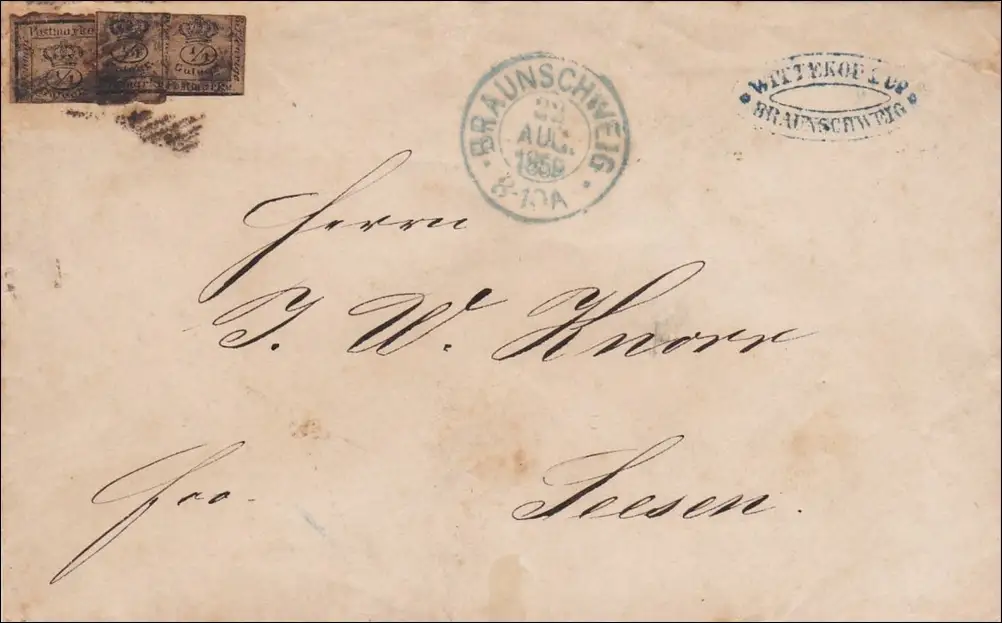 Postmarke
1/4
1/4
1/4
Guter
Postmarke
BRAUNSCHWEIG
22
AUG.
1859
8-10A
WITTEKOP & CO
BRAUNSCHWEIG
Herrn
J. W. Knorr
Fro. Seesen.